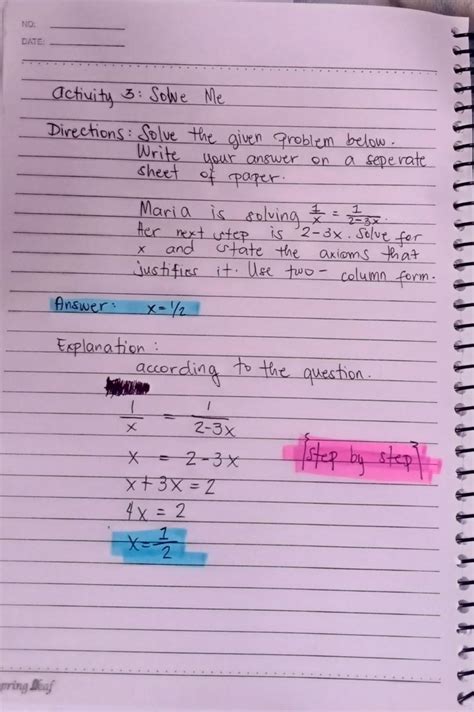 NO:
DATE:
activity 3: Solve Me
Directions: Solve the given problem below.
Write your answer on a seperate
sheet of paper.
Maria is solving 1/x = 1/2-3x.
Her next step is 2-3x. Solve for
x and state the axioms that
justifies it. Use two-column form.
Answer: x=1/2
Explanation:
according to the question.
1/x = 1/2-3x
x = 2-3x
{step by step}
x+3x=2
4x=2
x=1/2
pring leaf